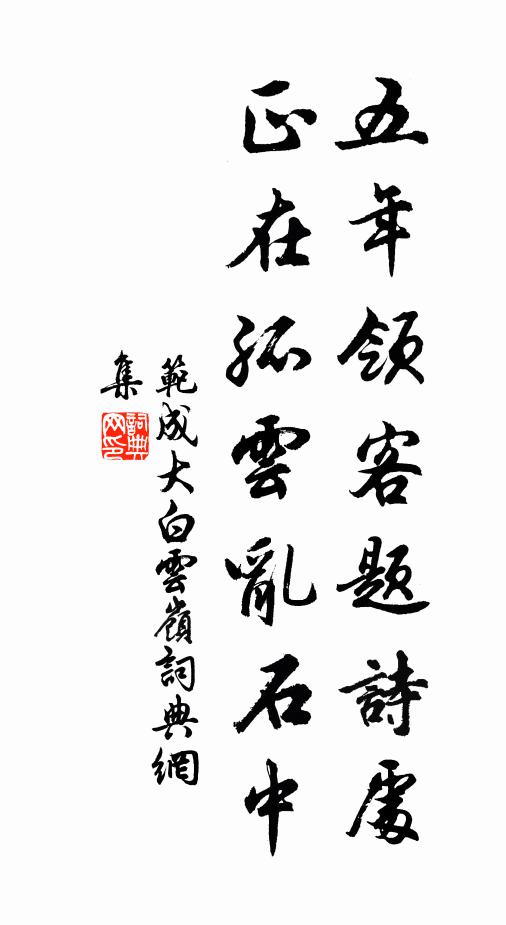 五年領客題詩處
正在孤雲亂石中
範成大白雲嶺詞典網
集
詞典
网印